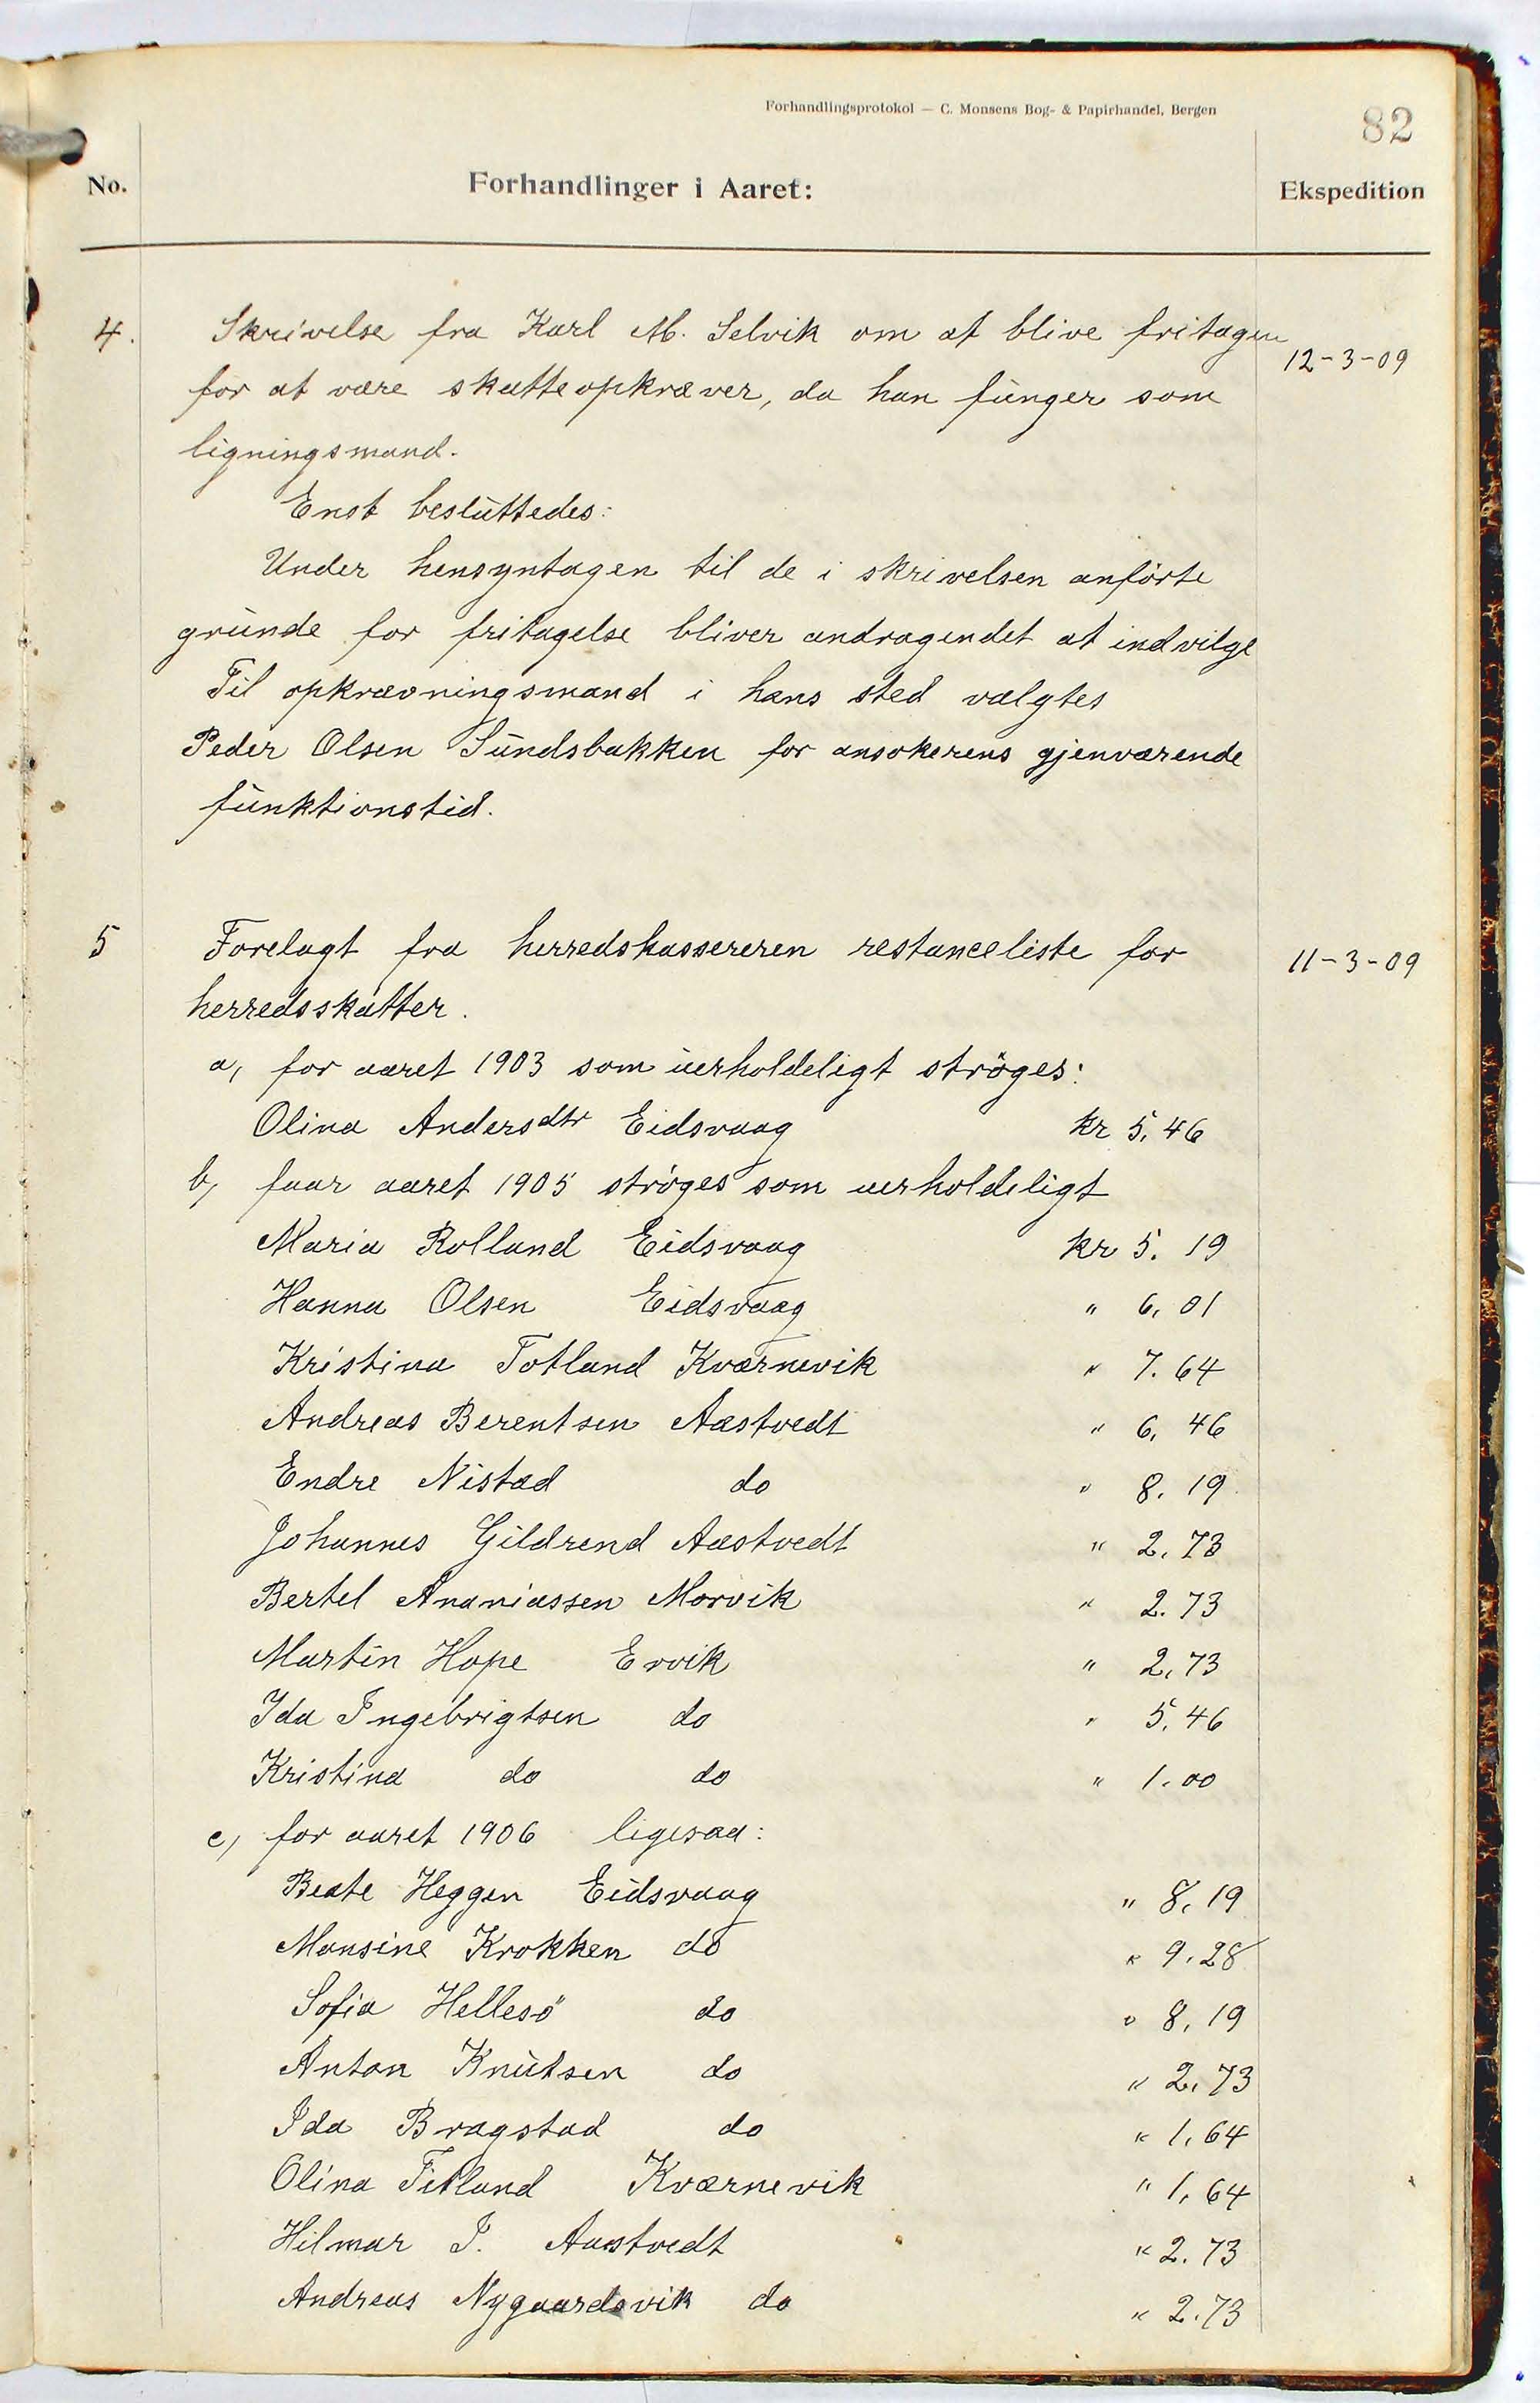 Forhandlingsprotokol — C. Monsens Bog- & Papirhandel, Bergen
82
No. Forhandlinger i Aaret: Ekspedition
4. Skrivelse fra Karl M. Selvik om at blive fritagen 12-3-09
for at være skatteopkræver, da han funger som
ligningsmand.
Enst besluttedes:
Under hensyntagen til de i skrivelsen anførte
grunde for fritagelse bliver andragendet at indvilge
Til opkrævningsmand i hans sted valgtes
Peder Olsen Sundsbakken for ansøkerens gjenværende
funktionstid.
5 Forelagt fra herredskassereren restanceliste for 11-3-09
herredsskatter.
a, for aaret 1903 som uerholdeligt strøges:
Olina Andersdtr Eidsvaag kr 5,46
b, faar aaret 1905 strøges som uerholdeligt
Maria Rolland Eidsvaag kr 5. 19
Hanna Olsen Eidsvaag " 6, 01
Kristina Totland Kværnevik " 7. 64
Andreas Berentsen Aastvedt " 6, 46
Endre Nistad do " 8. 19
Johannes Gildrend Aastvedt " 2. 73
Bertel Ananiassen Morvik " 2. 73
Martin Hope Ervik " 2, 73
Ida Ingebrigtsen do " 5, 46
Kristina do do " 1.00
c, for aaret 1906 ligesaa:
Beate Heggen Eidsvaag " 8, 19
Monsine Krokken do " 9. 28
Sofia Hellesö do " 8, 19
Anton Knutsen do " 2, 73
Ida Bragstad do " 1, 64
Olina Titland Kværnevik " 1, 64
Hilmar I. Aastvedt " 2. 73
Andreas Nygaardsvik do " 2. 73